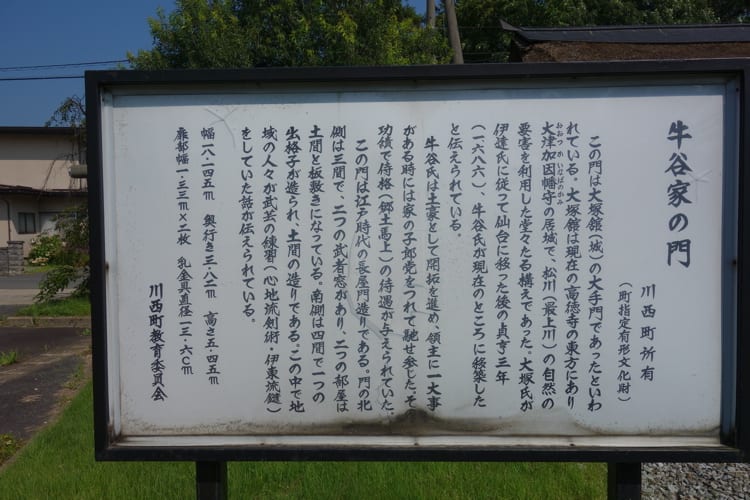 牛谷家の門
川西町所有
(町指定有形文化財)
この門は大塚館(城)の大手門であったといわ
れている。大塚館は現在の高徳寺の東方にあり
大津加因幡守の居城で、松川(最上川)の自然の
おおつかいなばのかみ
要害を利用した堂々たる構えであった。大塚氏が
伊達氏に従って仙台に移った後の貞享三年
(一六八六)、牛谷氏が現在のところに移築した
と伝えられている。
牛谷氏は土豪として開拓を進め、領主に一大事
がある時には家の子郎党をつれて馳せ参じた。そ
功績で侍格(郷士馬上)の待遇が与えられていた。
この門は江戸時代の長屋門造りである。門の北
側は三間で、二つの武者窓があり、二つの部屋は
土間と板敷きになっている。南側は四間で一つの
出格子が造られ、土間の造りである。この中で地
域の人々が武芸の練習(心地流剣術・伊東流鎚)
をしていた話が伝えられている。
幅一八・一四五m 奥行き三・八二m 高さ五・四五m
扉部幅一・三三m×二枚 乳金具直径一三・六cm
川西町教育委員会